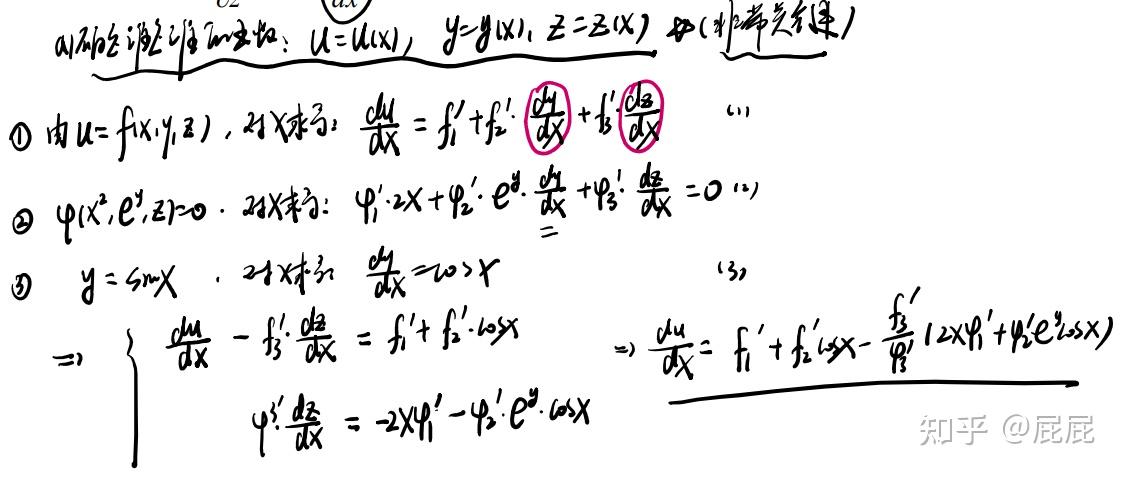 ∂z dx
(1) 确定谁是谁的函数: u=u(x), y=y(x), z=z(x) (非常关键)
① 由u=f(x,y,z), 对x求导: du/dx = f₁' + f₂'·dy/dx + f₃'·dz/dx (1)
② φ(x²,e^y,z)=0. 对x求导: φ₁'·2x+φ₂'·e^y·dy/dx+φ₃'·dz/dx=0 (2)
③ y=sinx . 对x求导 dy/dx=cosx (3)
=> { du/dx - f₃'·dz/dx = f₁'+f₂'·cosx => du/dx = f₁'+f₂'cosx - f₃'/φ₃' (2xφ₁'+φ₂'e^y cosx)
φ₃'·dz/dx = -2xφ₁' - φ₂'·e^y·cosx
知乎 @屁屁